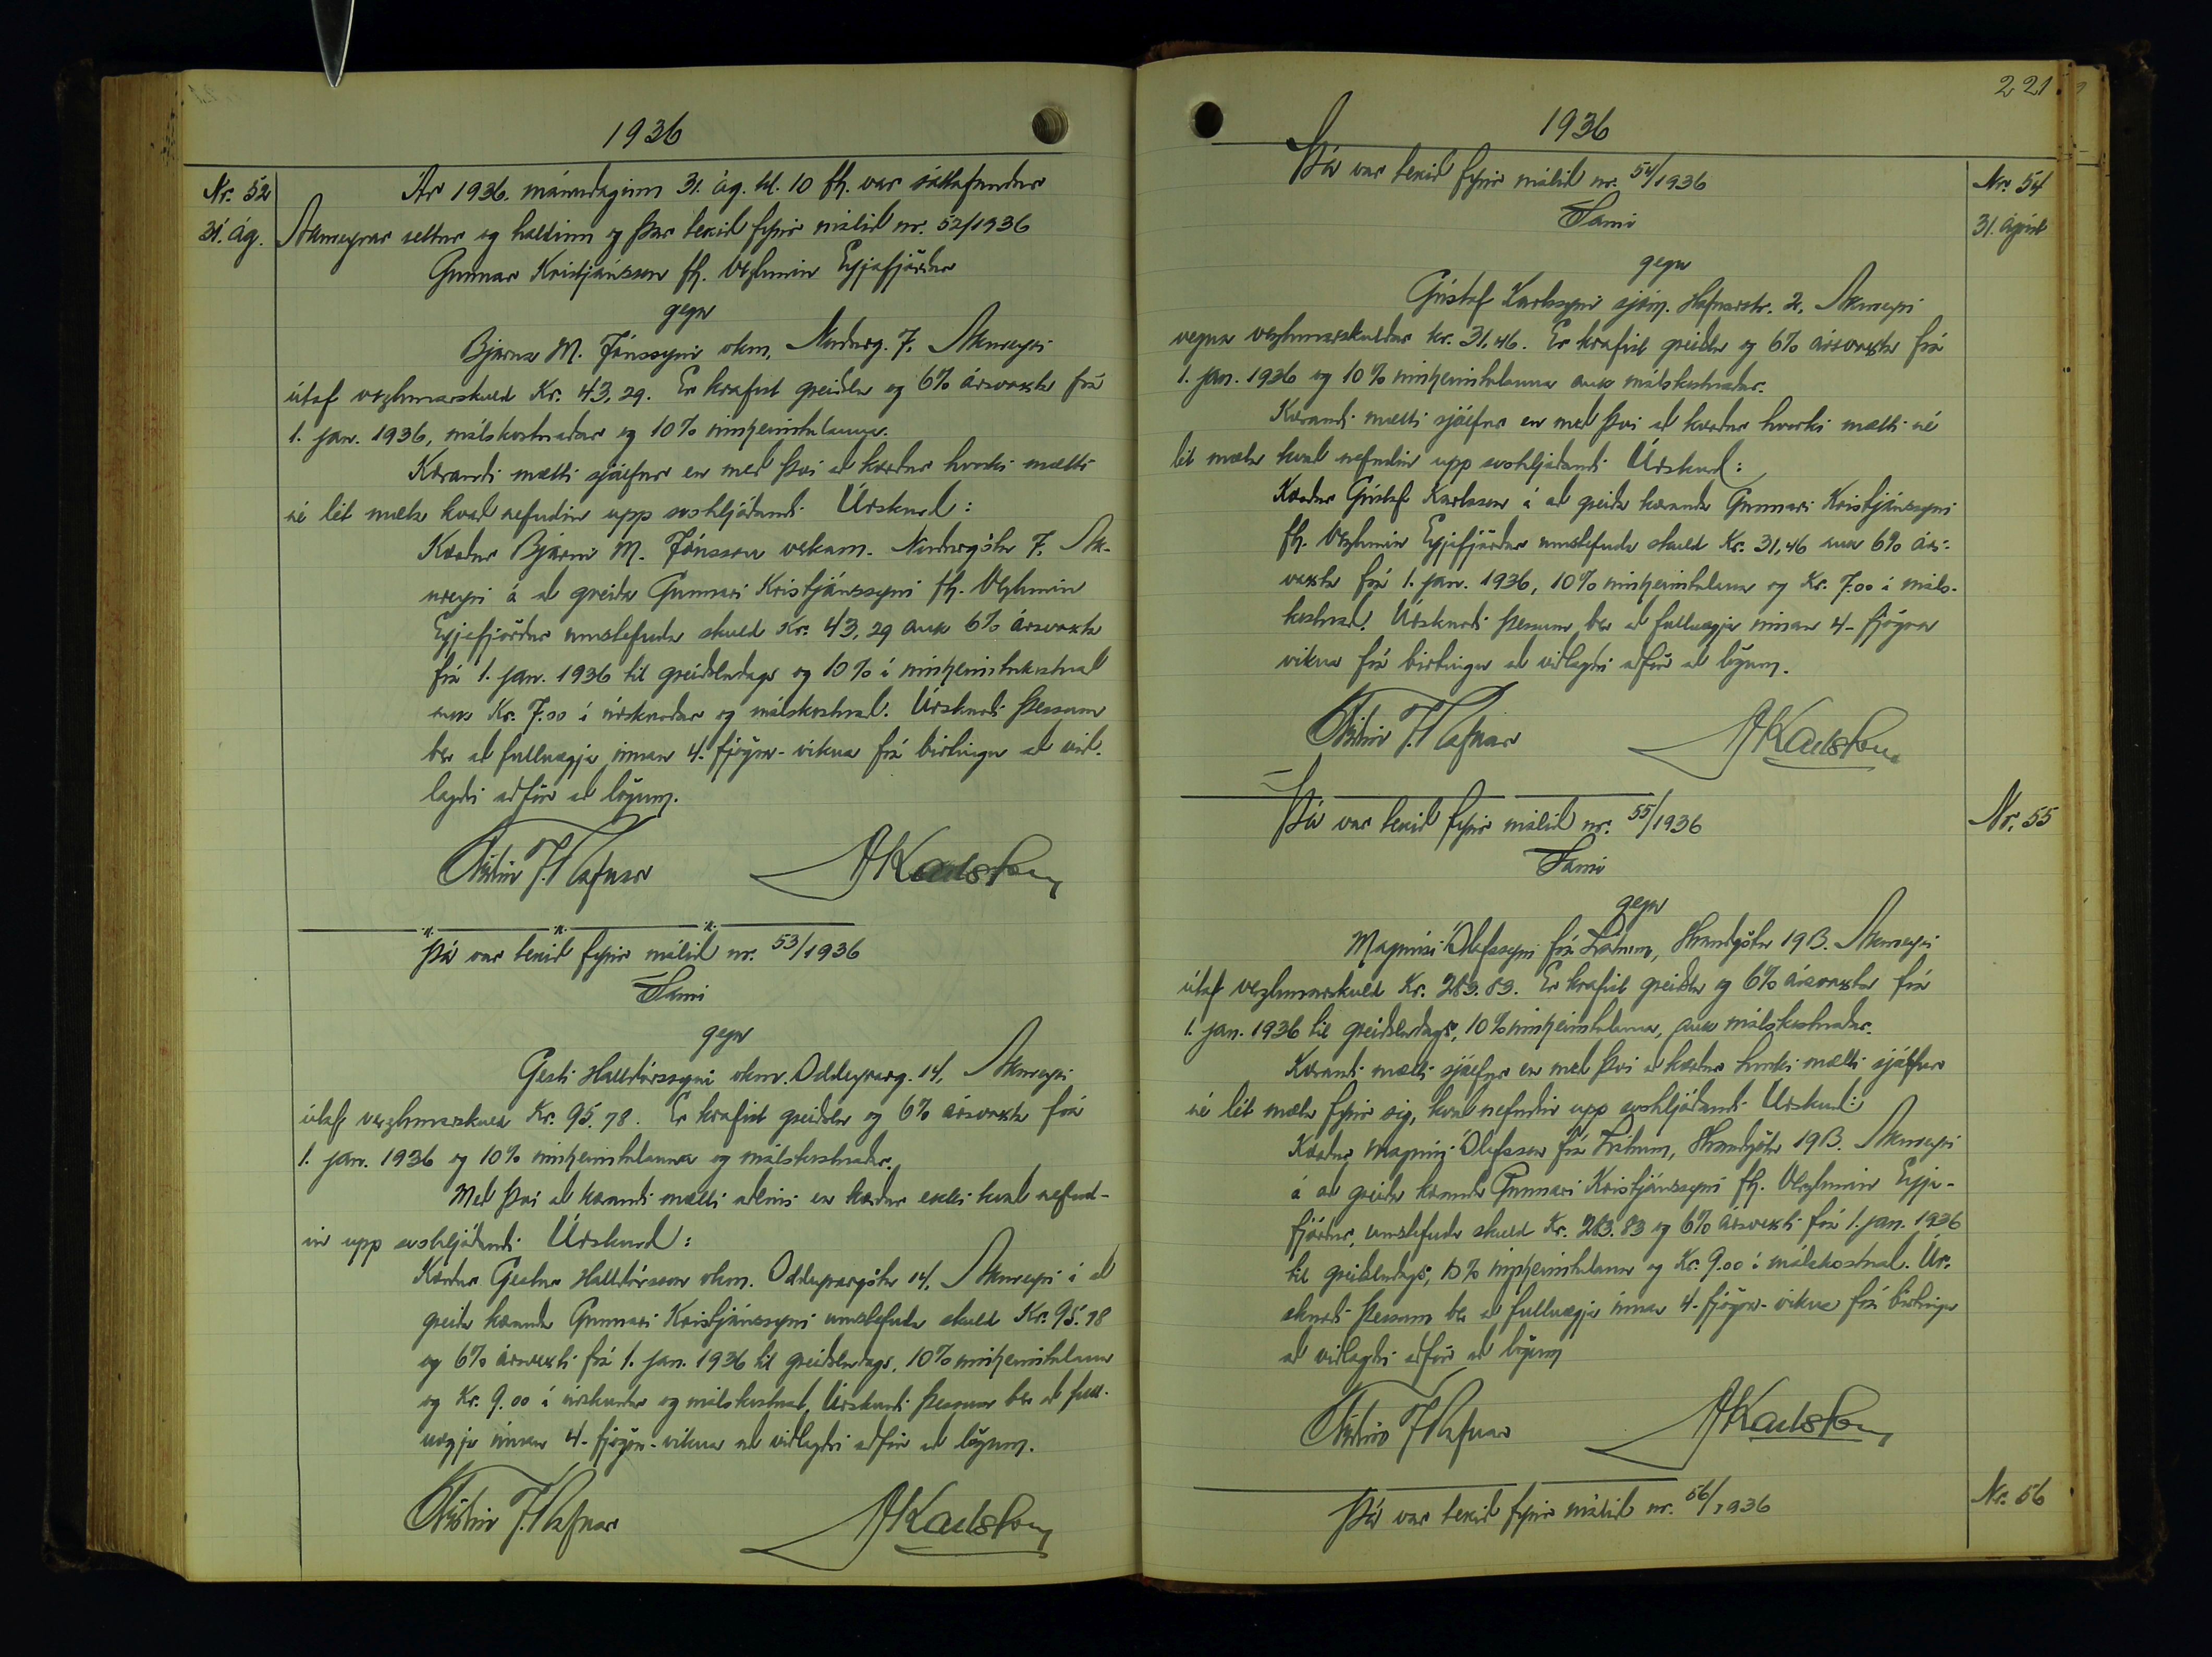 1936
Nr. 52
31. ág.
Ár 1936. mánudaginn 31. ág. kl. 10 fh. var sáttafundur
Akureyrar settur og haldinn og þar tekið fyrir málið nr. 52/1936
Gunnar Kristjánsson fh. Vezlunin Eyjafjörður
gegn
Bjarna M. Jónssyni vkm. Norðurg. 7. Akureyri
útaf vezlunarskuld Kr. 43,29. Er krafist greiðslu og 6% ársvaxta frá
1. jan. 1936, málskostnaðar og 10% innheimtulauna.
Kærandi mætti sjálfur en með því að kærður hvorki mætti
né lét mæta kvað nefndin upp svohljóðandi Úrskurð:
Kærður Bjarni M. Jónsson verkam. Norðurgötu 7. Ak-
ureyri á að greiða Gunnari Kristjánssyni fh. Vezlunin
Eyjafjörður umstefnda skuld Kr. 43,29 auk 6% ársvaxta
frá 1. jan. 1936 til greiðsludags og 10% í innheimtukostnað
auk Kr. 7.00 í úrskurðar og málskostnað. Úrskurði þessum
ber að fullnægja innan 4-fjögra-vikna frá birtingu að við-
lagðri aðför að lögum.
Friðrik J. Rafnar
AKarlsson
Þá var tekið fyrir málið nr. 53/1936
Sami
gegn
Gesti Halldórssyni vkm. Oddeyrarg. 14, Akureyri
útaf vezlunarskuld Kr. 95.78. Er krafist greiðslu og 6% ársvaxta frá
1. jan. 1936 og 10% innheimtulauna og málskostnaðar.
Með því að kærandi mætti aðeins en kærður ekki kvað nefnd-
in upp svohljóðandi Úrskurð:
Kærður Gestur Halldórsson vkm. Oddeyrargötu 14, Akureyri á að
greiða kæranda Gunnari Kristjánssyni umstefnda skuld Kr. 95.78
og 6% ársvexti frá 1. jan. 1936 til greiðsludags, 10% innheimtulaun
og Kr. 9.00 í úrskurðar og málskostnað. Úrskurði þessum ber að full-
nægja innan 4-fjögra-vikna að viðlagðri aðför að lögum.
Friðrik J. Rafnar
AKarlsson
221
1936
Þá var tekið fyrir málið nr. 54/1936
Nr. 54
31. ágúst
Sami
gegn
Gústaf Karlssyni sjóm. Hafnarstr. 2, Akureyri
vegna vezlunarskuldar kr. 31,46. Er krafist greiðslu og 6% ársvaxta frá
1. jan. 1936 og 10% innheimtulauna auk málskostnaðar.
Kærandi mætti sjálfur en með því að kærður hvorki mætti né
lét mæta kvað nefndin upp svohljóðandi Úrskurð:
Kærður Gústaf Karlsson á að greiða kæranda Gunnari Kristjánssyni
fh. Vezlunin Eyjafjörður umstefnda skuld Kr. 31,46 auk 6% árs-
vaxta frá 1. jan. 1936, 10% innheimtulaun og Kr. 7.00 í máls-
kostnað. Úrskurði þessum ber að fullnægja innan 4-fjögra
vikna frá birtingu að viðlagðri aðför að lögum.
Friðrik J. Rafnar
AKarlsson
Þá var tekið fyrir málið nr. 55/1936
Nr. 55
Sami
gegn
Magnúsi Ólafssyni frá Látrum, Strandgötu 19B. Akureyri
útaf vezlunarskuld Kr. 283.83. Er krafist greiðslu og 6% ársvaxta frá
1. jan. 1936 til greiðsludags, 10% innheimtulauna, auk málskostnaðar.
Kærandi mætti sjálfur en með því að kærður hvorki mætti sjálfur
né lét mæta fyrir sig, kvað nefndin upp svohljóðandi Úrskurð:
Kærður Magnús Ólafsson frá Látrum, Strandgötu 19B. Akureyri
á að greiða kæranda Gunnari Kristjánssyni fh. Vezlunin Eyja-
fjörður, umstefnda skuld Kr. 283.83 og 6% ársvexti frá 1. jan. 1936
til greiðsludags, 10% innheimtulaun og Kr. 9.00 í málskostnað. Úr-
skurði þessum ber að fullnægja innan 4-fjögra-vikna frá birtingu
að viðlagðri aðför að lögum
Friðrik J. Rafnar
AKarlsson
Þá var tekið fyrir málið nr. 56/1936
Nr. 56